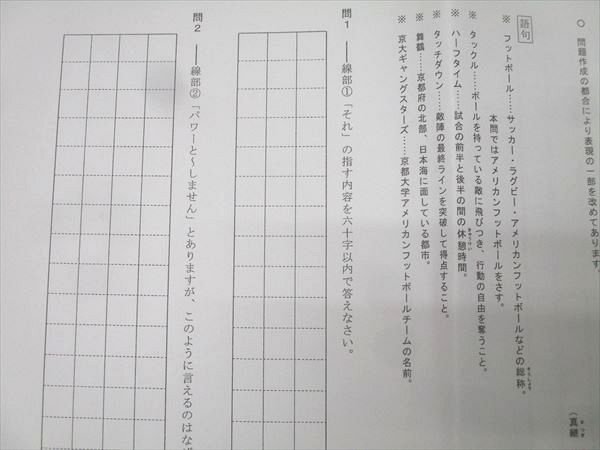 ○ 問題作成の都合により表現の一部を改めてあります。
(真継
語句
※ フットボール……サッカー・ラグビー・アメリカンフットボールなどの総称。
本問ではアメリカンフットボールをさす。
※ タックル……ボールを持っている敵に飛びつき、行動の自由を奪うこと。
※ ハーフタイム……試合の前半と後半の間の休憩時間。
※ タッチダウン……敵陣の最終ラインを突破して得点すること。
※ 舞鶴……京都府の北部、日本海に面している都市。
※ 京大ギャングスターズ……京都大学アメリカンフットボールチームの名前。
問1 ――線部①「それ」の指す内容を六十字以内で答えなさい。
問2 ――線部②「パワーと〜しません」とありますが、このように言えるのはなぜ